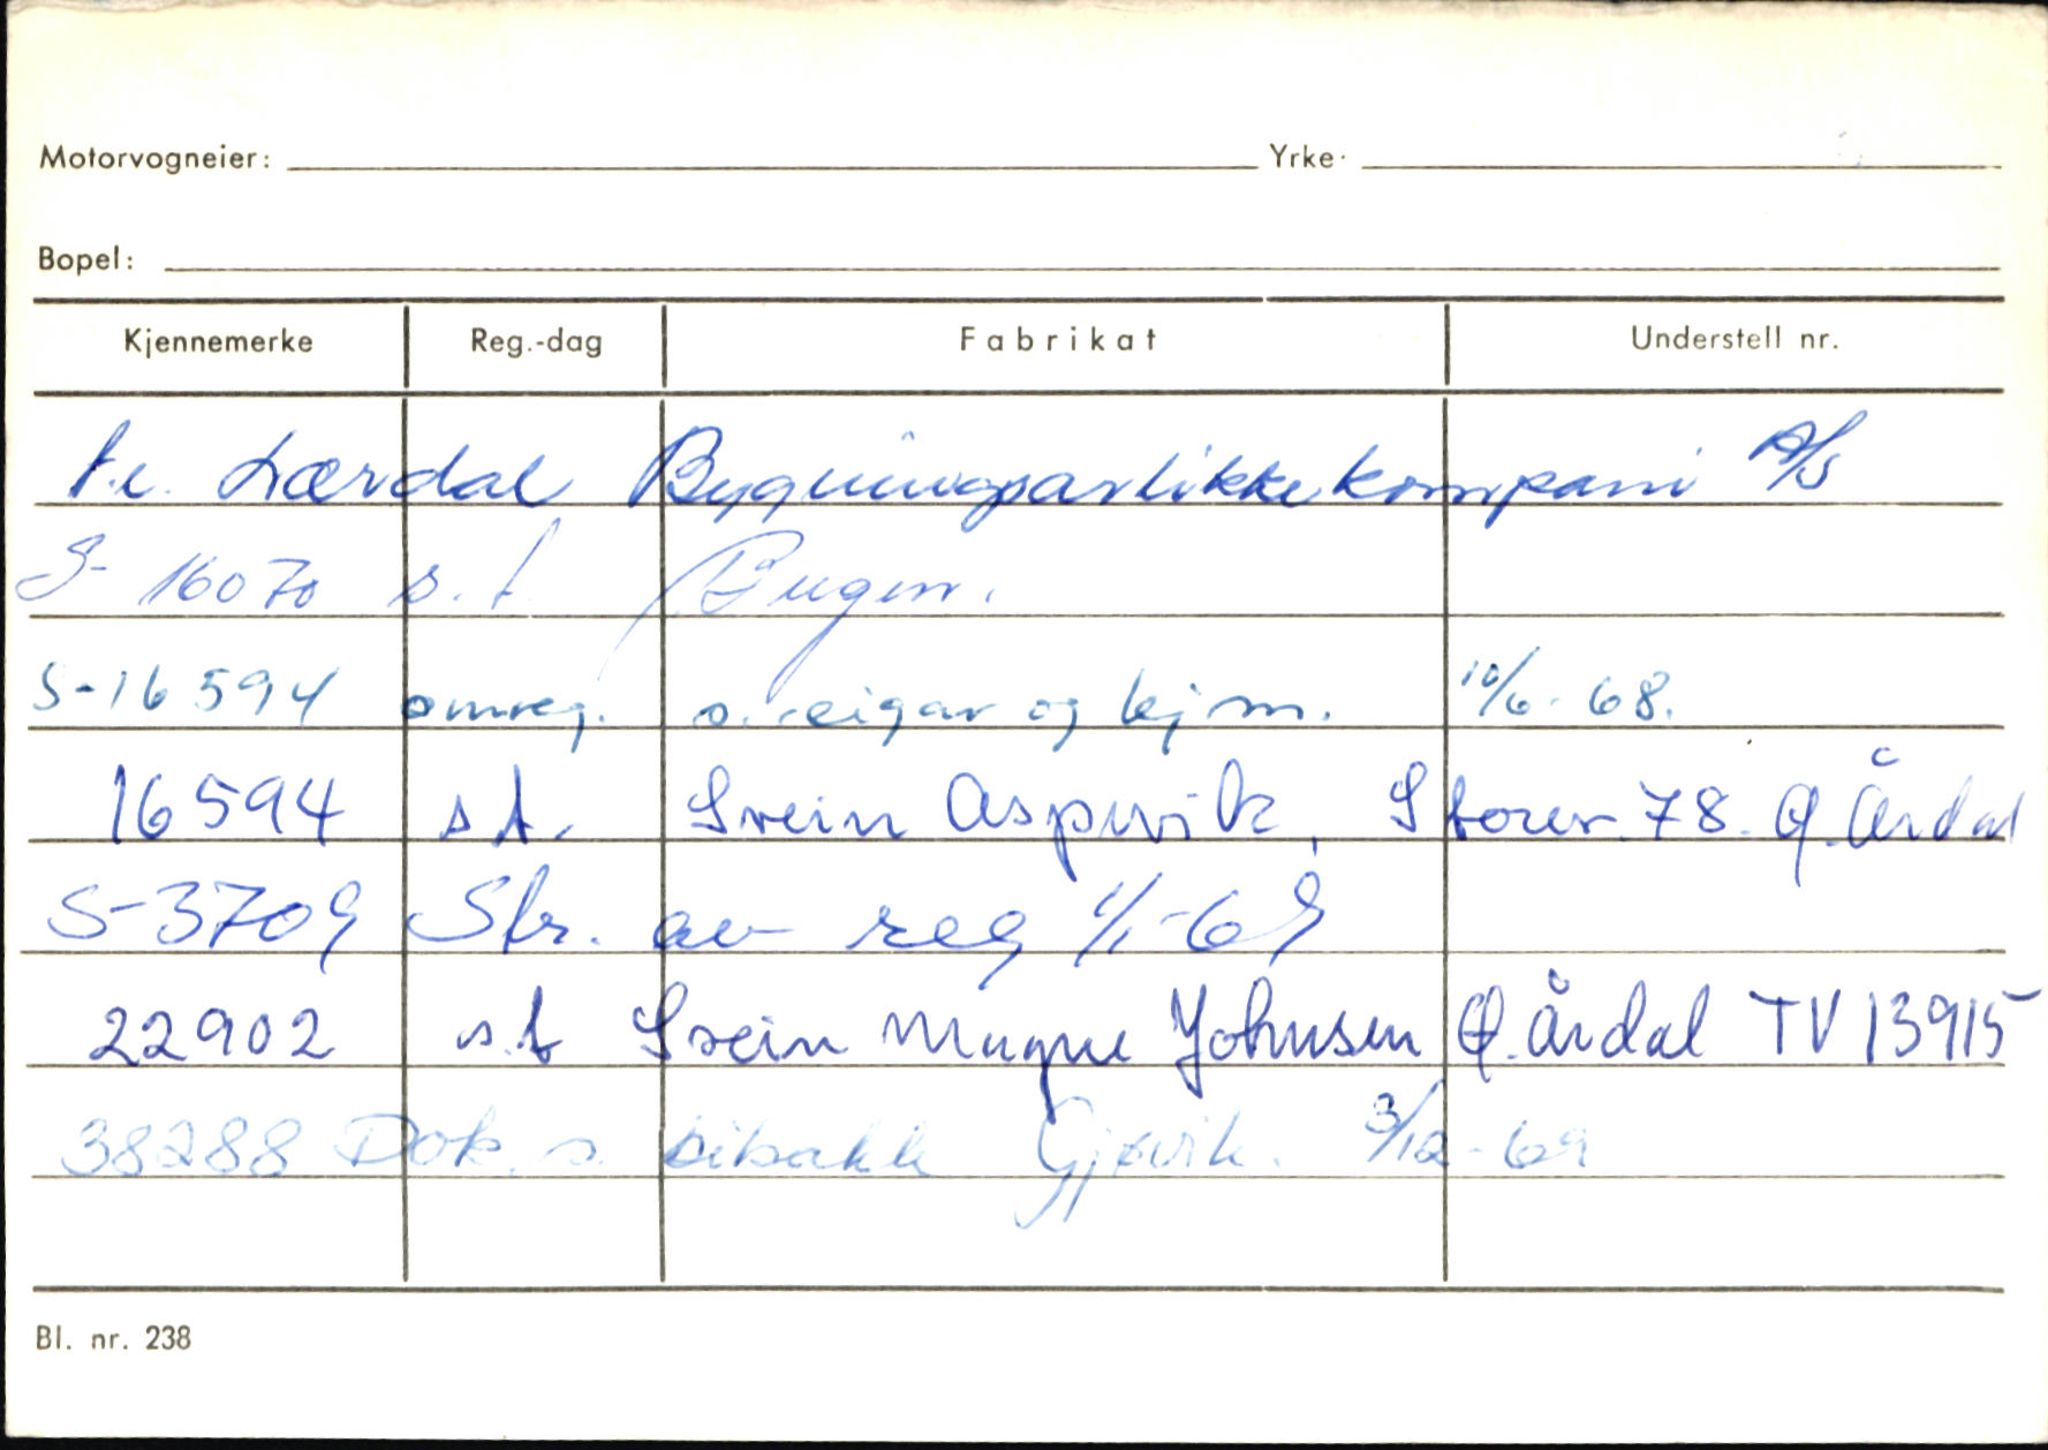 Motorvogneier: Yrke
Bopel:
Kjennemerke Reg.-dag Fabrikat Understell nr.
Lærdal Bygningsartikkekompani A/S
S- 16070 s.t.
S-16594 omreg. s. eigar og kjm. 10/6-68.
16594 s.t. Svein Aspevik, Storev. 78. Ø. Årdal
S-3709 Str. av reg 1/1-69
22902 s.t Svein Magne Johnsen Ø. Årdal TV13915
38288 Dok. s. bilsakk Gjøvik. 3/12-69
Bl. nr. 238